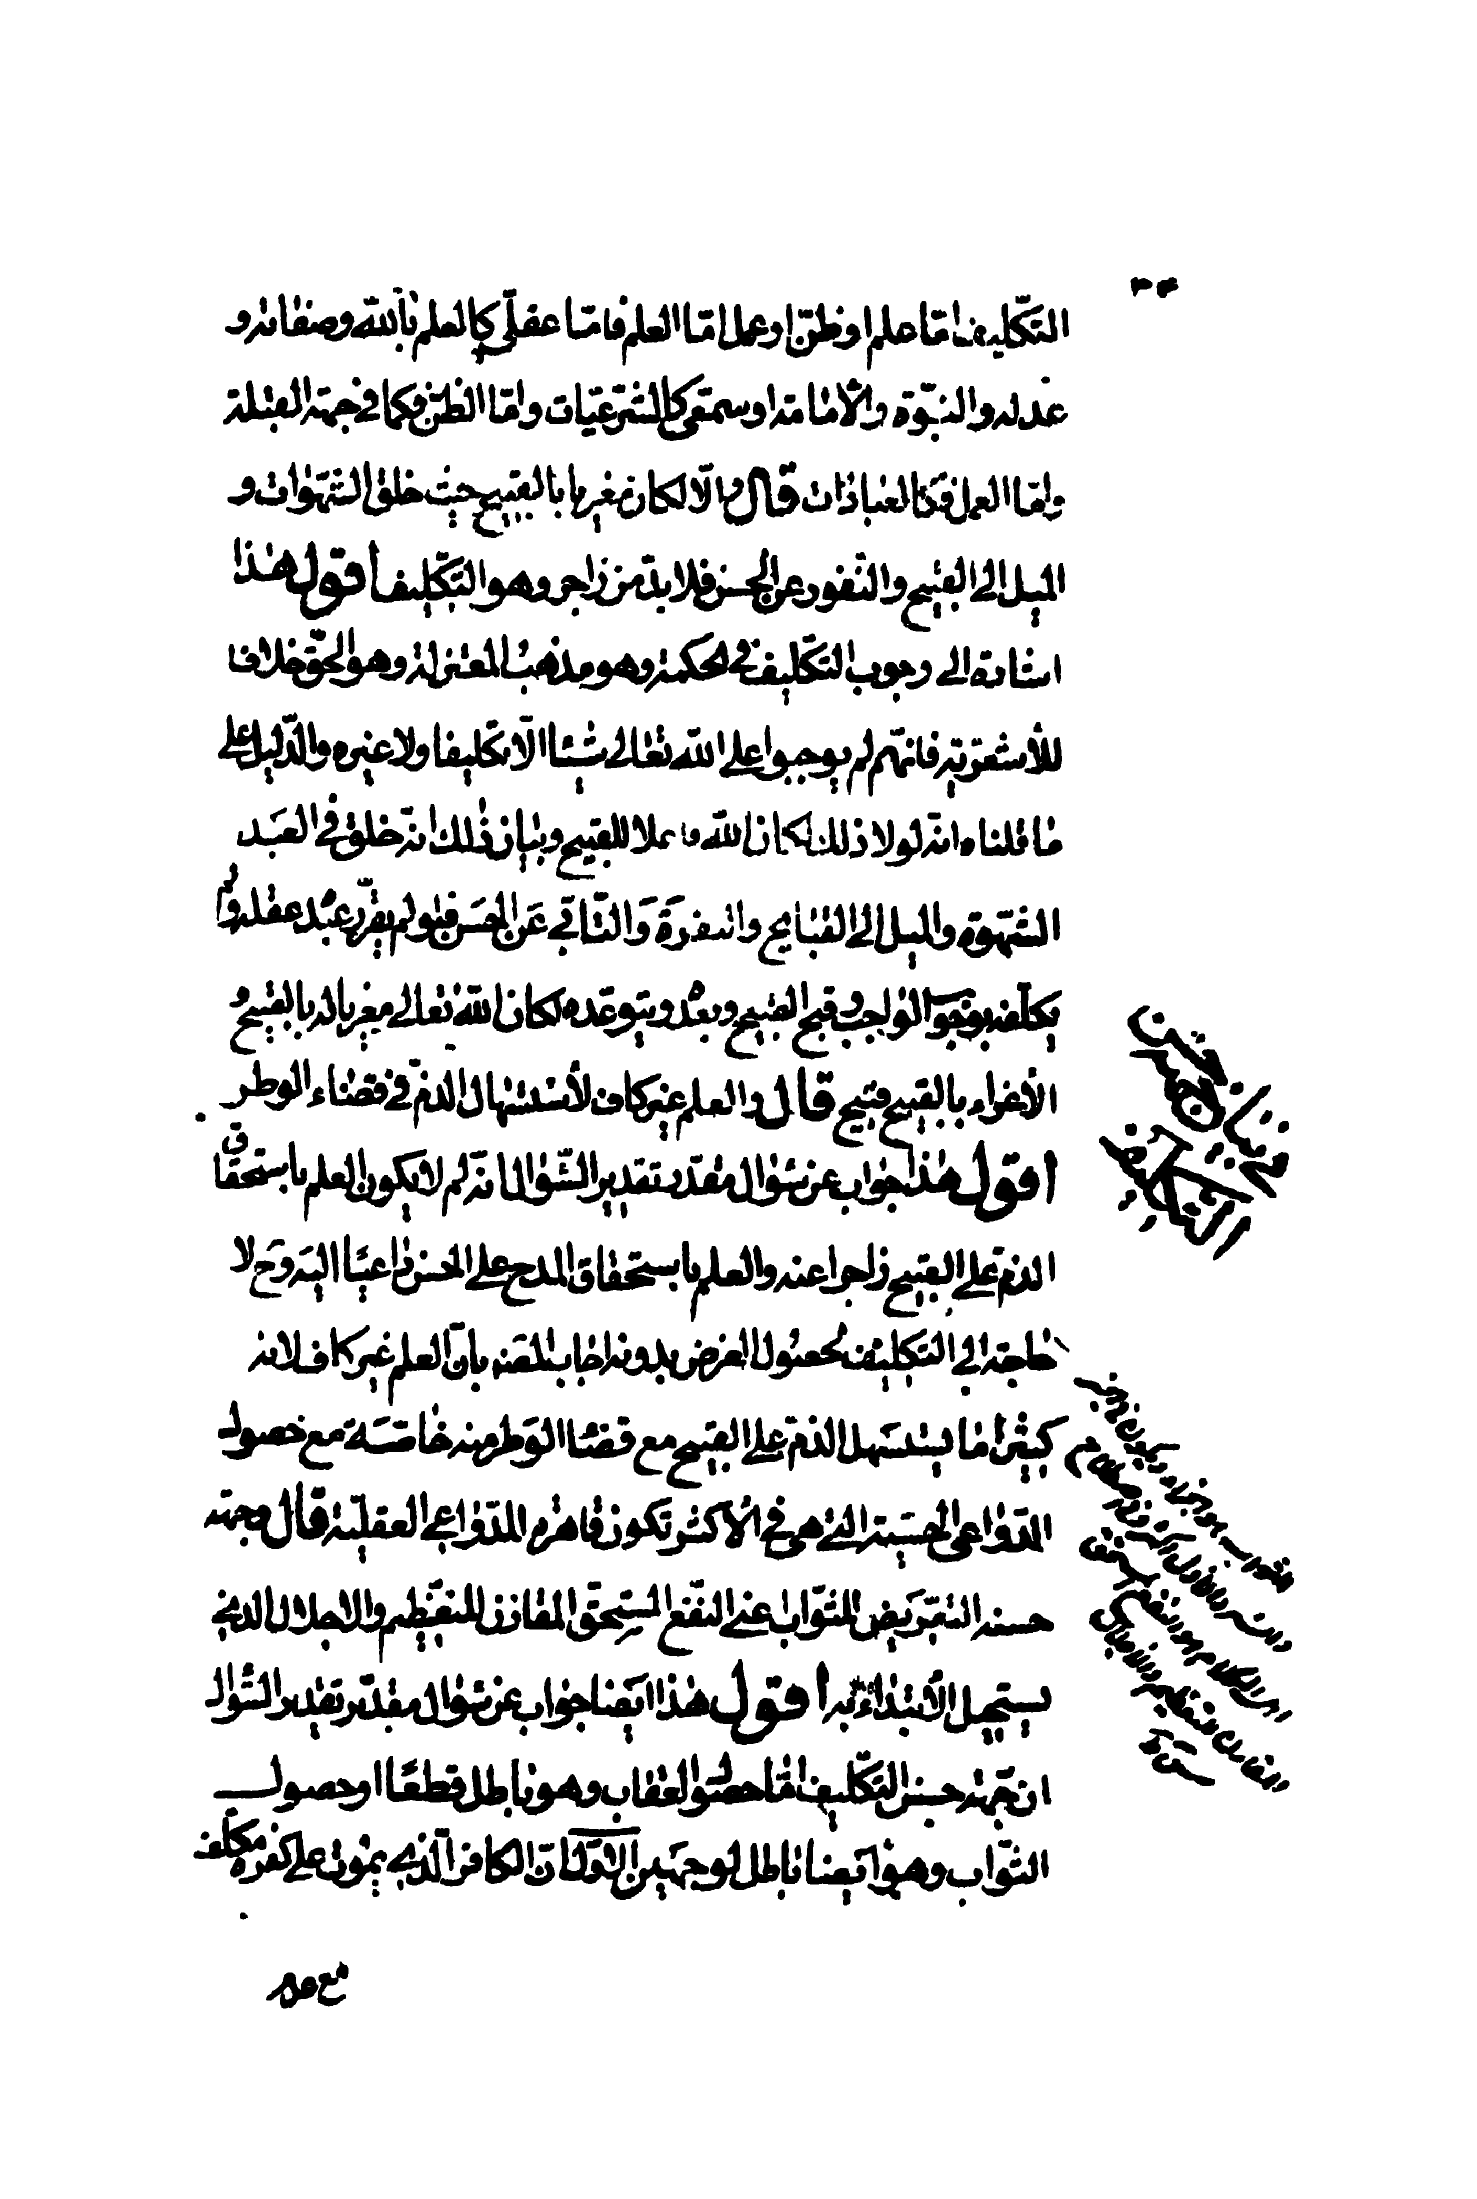 التكليف امّا علم او ظنّ او عمل امّا العلم فامّا عقلّى كالعلم بالله وصفاته و
عدله والنبوّة والامامة او سمعّى كالشرعيّات وامّا الظنّ فكما فى جهة القبلة
وامّا العمل فكالعبادات قال والّا لكان مغريا بالقبيح حيث خلق الشهوات و
الميل الى القبيح والنفور عن الحسن فلا بدّ من زاجر وهو التكليف اقول هذا
اشارة الى وجوب التكليف فى الحكمة وهو مذهب المعتزلة وهو الحقّ خلافا
للأشعريّة فانهّم لم يوجبوا على الله تعالى شيئا لا تكليفا ولا غيره والدّليل على
ما قلناه انّه لولا ذلك لكان الله فاعلا للقبيح وبيان ذلك انّه خلق فى العبد
الشهوة والميل الى القبايح والنفرة والتّاقى عن الحسن فلو لم يقرّر عند عقله ولم
يكلّفه بوجوب الواجب وقبح القبيح ويعده ويتوعّده لكان الله تعالى مغريا له بالقبيح و
الأغراء بالقبيح قبيح قال والعلم غير كاف لأستسهال الذمّ فى قضاء الوطر
اقول هذا جواب عن سؤال مقدّر تقدير السّؤال انّه لم لا يكون العلم باستحقاق
الذم على القبيح زاجرا عنه والعلم باستحقاق المدح على الحسن داعيًا اليه وح لا
حاجة الى التكليف لحصول الغرض بدونه اجاب المصنّف بانّ العلم غير كاف لانه
كثيرا ما يستسهل الذمّ على القبيح مع قضاء الوطر منه خاصّة مع حصول
الدّواعى الحسّية التى هى فى الأكثر تكون قاهرة للدّواعى العقليّة قال وجهة
حسنه التعريض للثوّاب اعنى النفع المستحق المقارن للتعظيم والاجلال الذى
يستحيل الأبتداء به اقول هذا ايضا جواب عن سؤال مقدّر تقدير السّؤال
ان جهة حسن التكليف امّا حصول العقاب وهو باطل قطعًا او حصول
الثّواب وهو ايضا باطل لوجهين الاوّل انّ الكافر الّذى يموت على كفره مكلّف
مع
فى بيان جهة حسن
التكليف